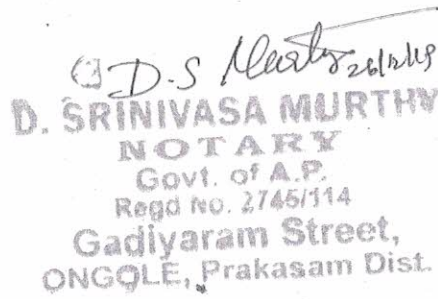 D.S Murty 26/12/19
D. SRINIVASA MURTHY
NOTARY
Govt. of A.P.
Regd No. 2745/114
Gadiyaram Street,
ONGOLE, Prakasam Dist.